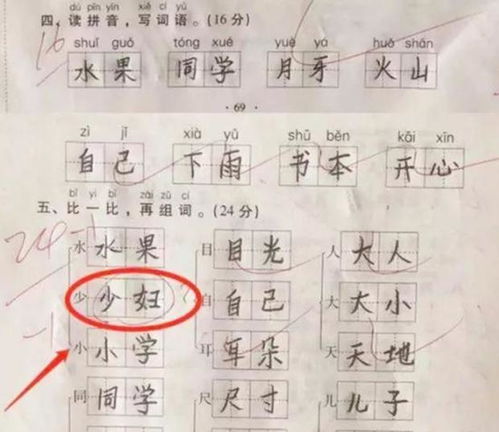 dú pīn yīn xiě cí yǔ
四、读拼音，写词语。（16分）
16
shuǐ guǒ tóng xué yuè yá huǒ shān
水果 同学 月牙 火山
·69·
zì jǐ xià yǔ shū běn kāi xīn
自己 下雨 书本 开心
bǐ yi bǐ zài zǔ cí
五、比一比，再组词。（24分）
24-1
水 水果 目 目光 人 大人
少 少妇 自 自己 大 大小
-1
小 小学 耳 耳朵 天 天地
同 同学 尺 尺寸 儿 儿子